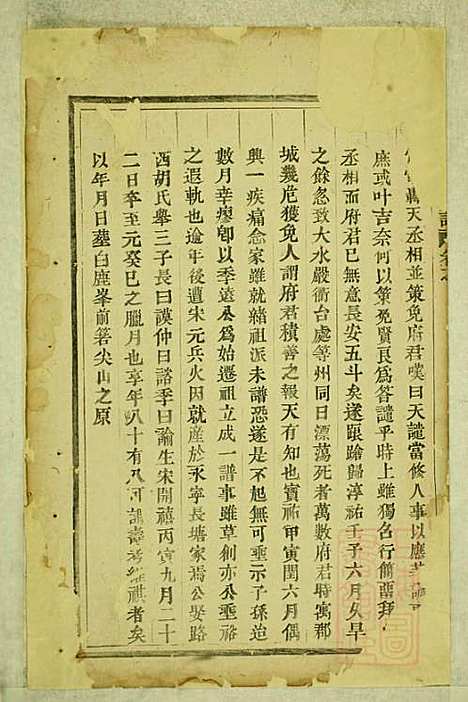 天丞相並策免府君嘆曰天譴當修人事以應
庶或叶吉奈何以策免賢良為答譴乎時上雖獨名行簡罷拜
丞相而府君已無意長安五斗矣遂踉蹌歸淳祐壬子六月久旱
之餘忽致大水嚴衢台處等州同日漂蕩死者萬數府君時寓郡
城幾危獲免人謂府君積善之報天有知也寶祐甲寅閏六月偶
興一疾痛念家雖就緒祖派未譜恐遂是不起無可垂示子孫迨
數月幸瘳卽以季遠公為始遷祖立成一譜事雖草創亦公垂裕
之遐軌也逾年後遭宋元兵火因就產於永寧長塘家焉公娶路
西胡氏舉三子長曰謨仲曰諮季曰諭生宋開禧丙寅九月二十
二日卒至元癸巳之臘月也享年八十有八可謂壽考維祺者矣
以年月日塟白鹿峯前箬尖山之原